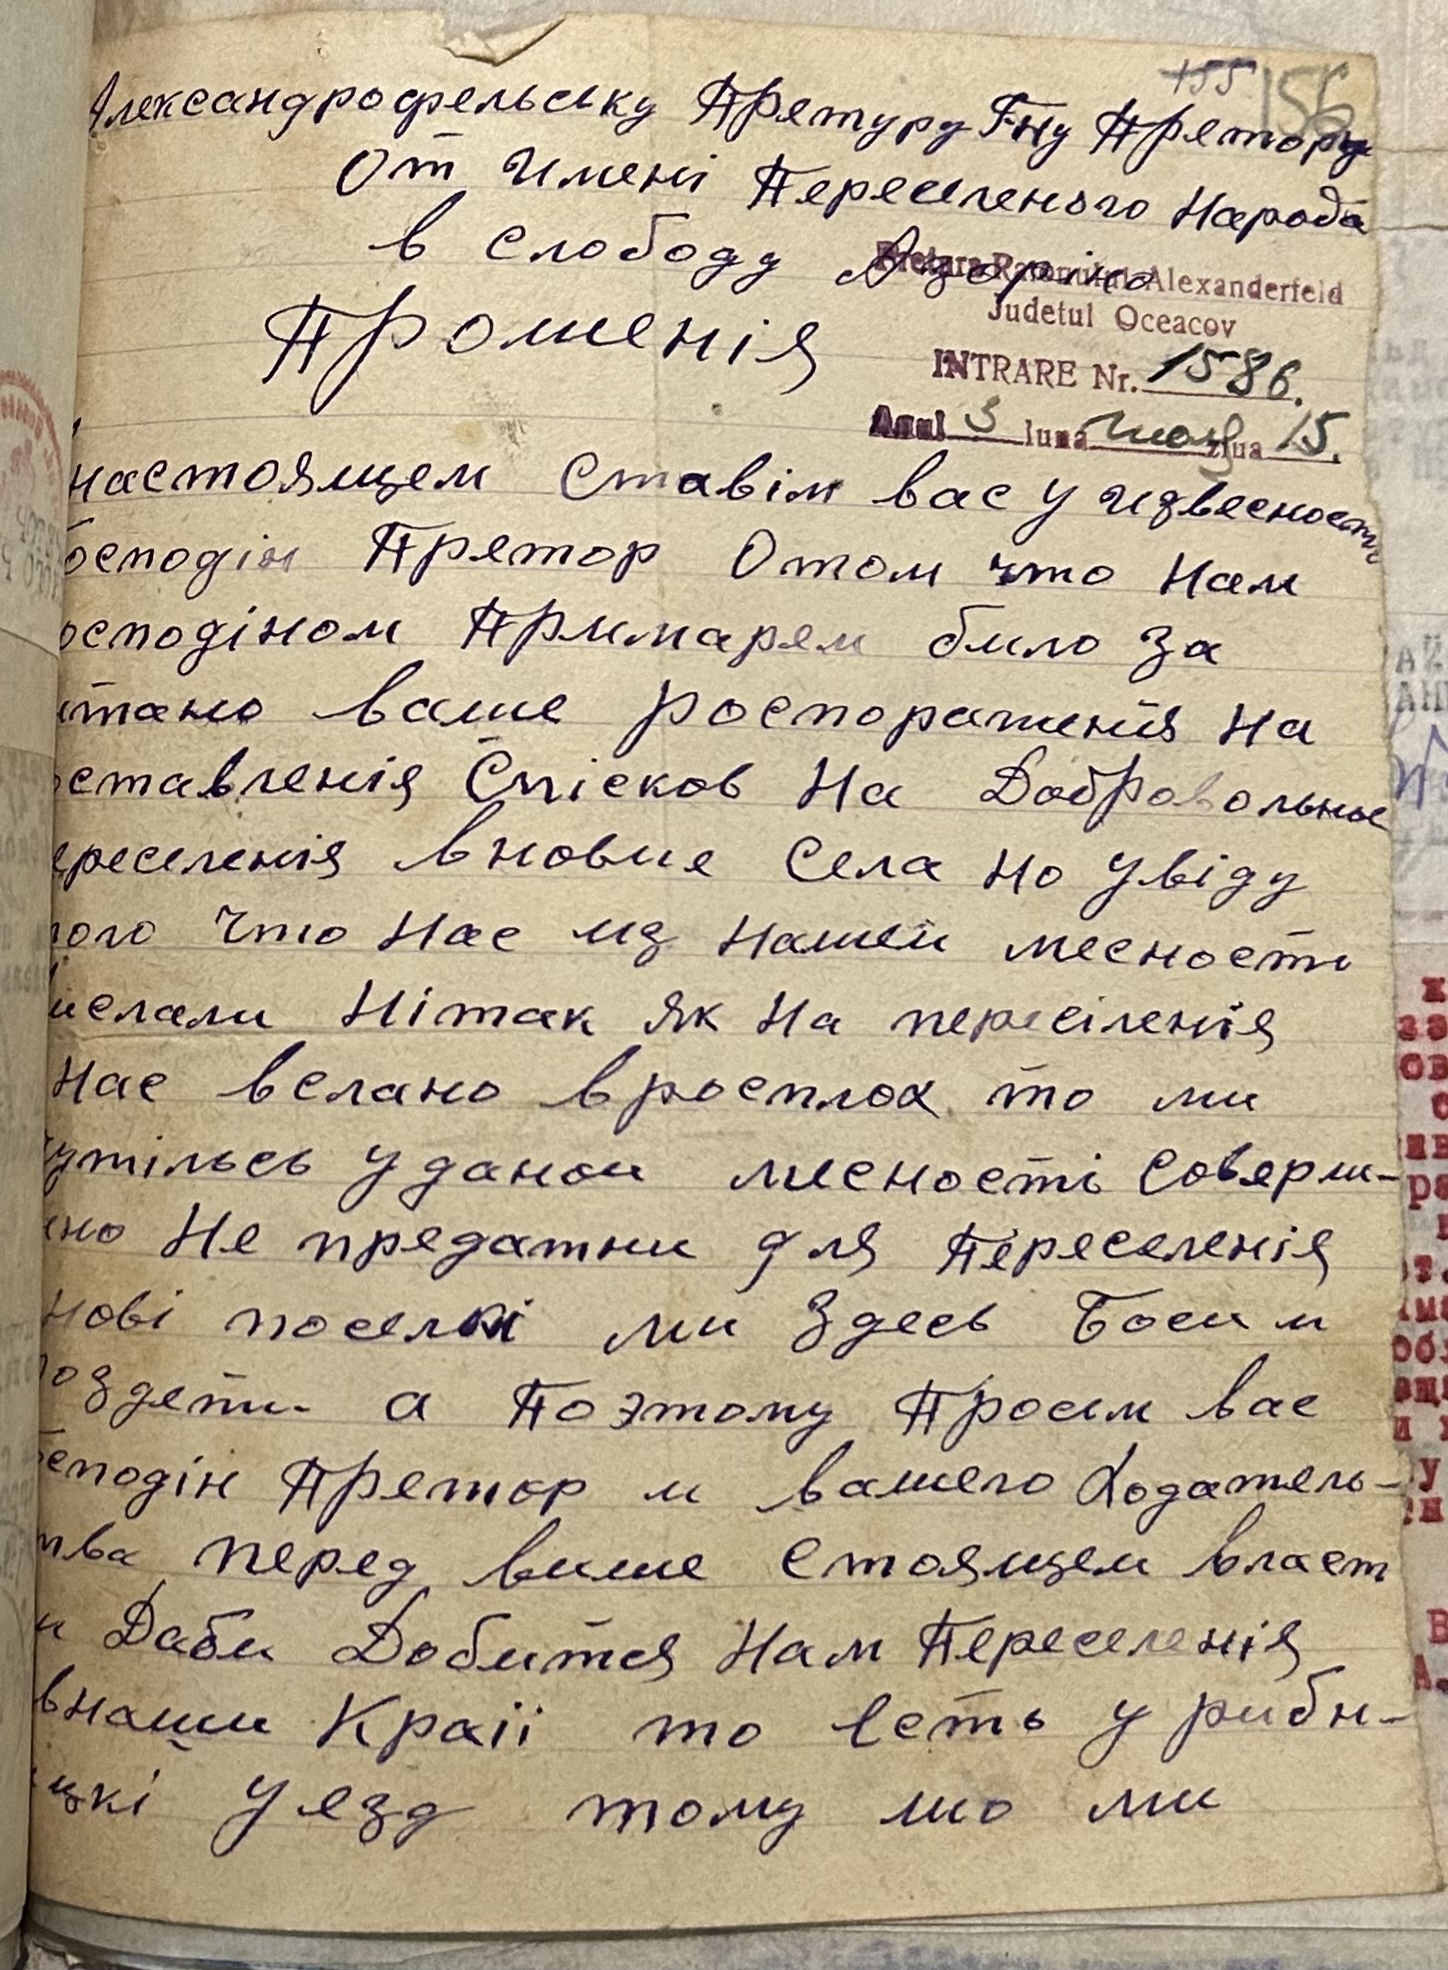 155 156
Александрофельську Претуру Гну Претору
От Имені Переселеного Народа
в слободу
Pretura Raionului Alexanderfeld
Judetul Oceacov
Прошенія
INTRARE Nr. 1586.
Anul 3 luna май ziua 15.
настоящем Ставім вас у извесность
осподін Претор Отом что Нам
осподіном Примарем било за
итано ваше роспоражения На
оставленія Спісков На Добровольные
ереселенія вновие Села Но Увіду
того Что Нас из Нашей месности
ислали Нітак як На пересіленія
Нас вслано вросплох то ми
утілись у даной месності Соверш-
ено Не предатни для Переселенія
нові поселкі ми Здесь Боси и
оздети а Поэтому Просим вас
осподін Претор и вашего Ходатель-
тва перед више Стоящем власт
и Даби Добитея Нам Переселенія
внаши Краіі то Есть у рибн-
цкі Уезд тому шо ми